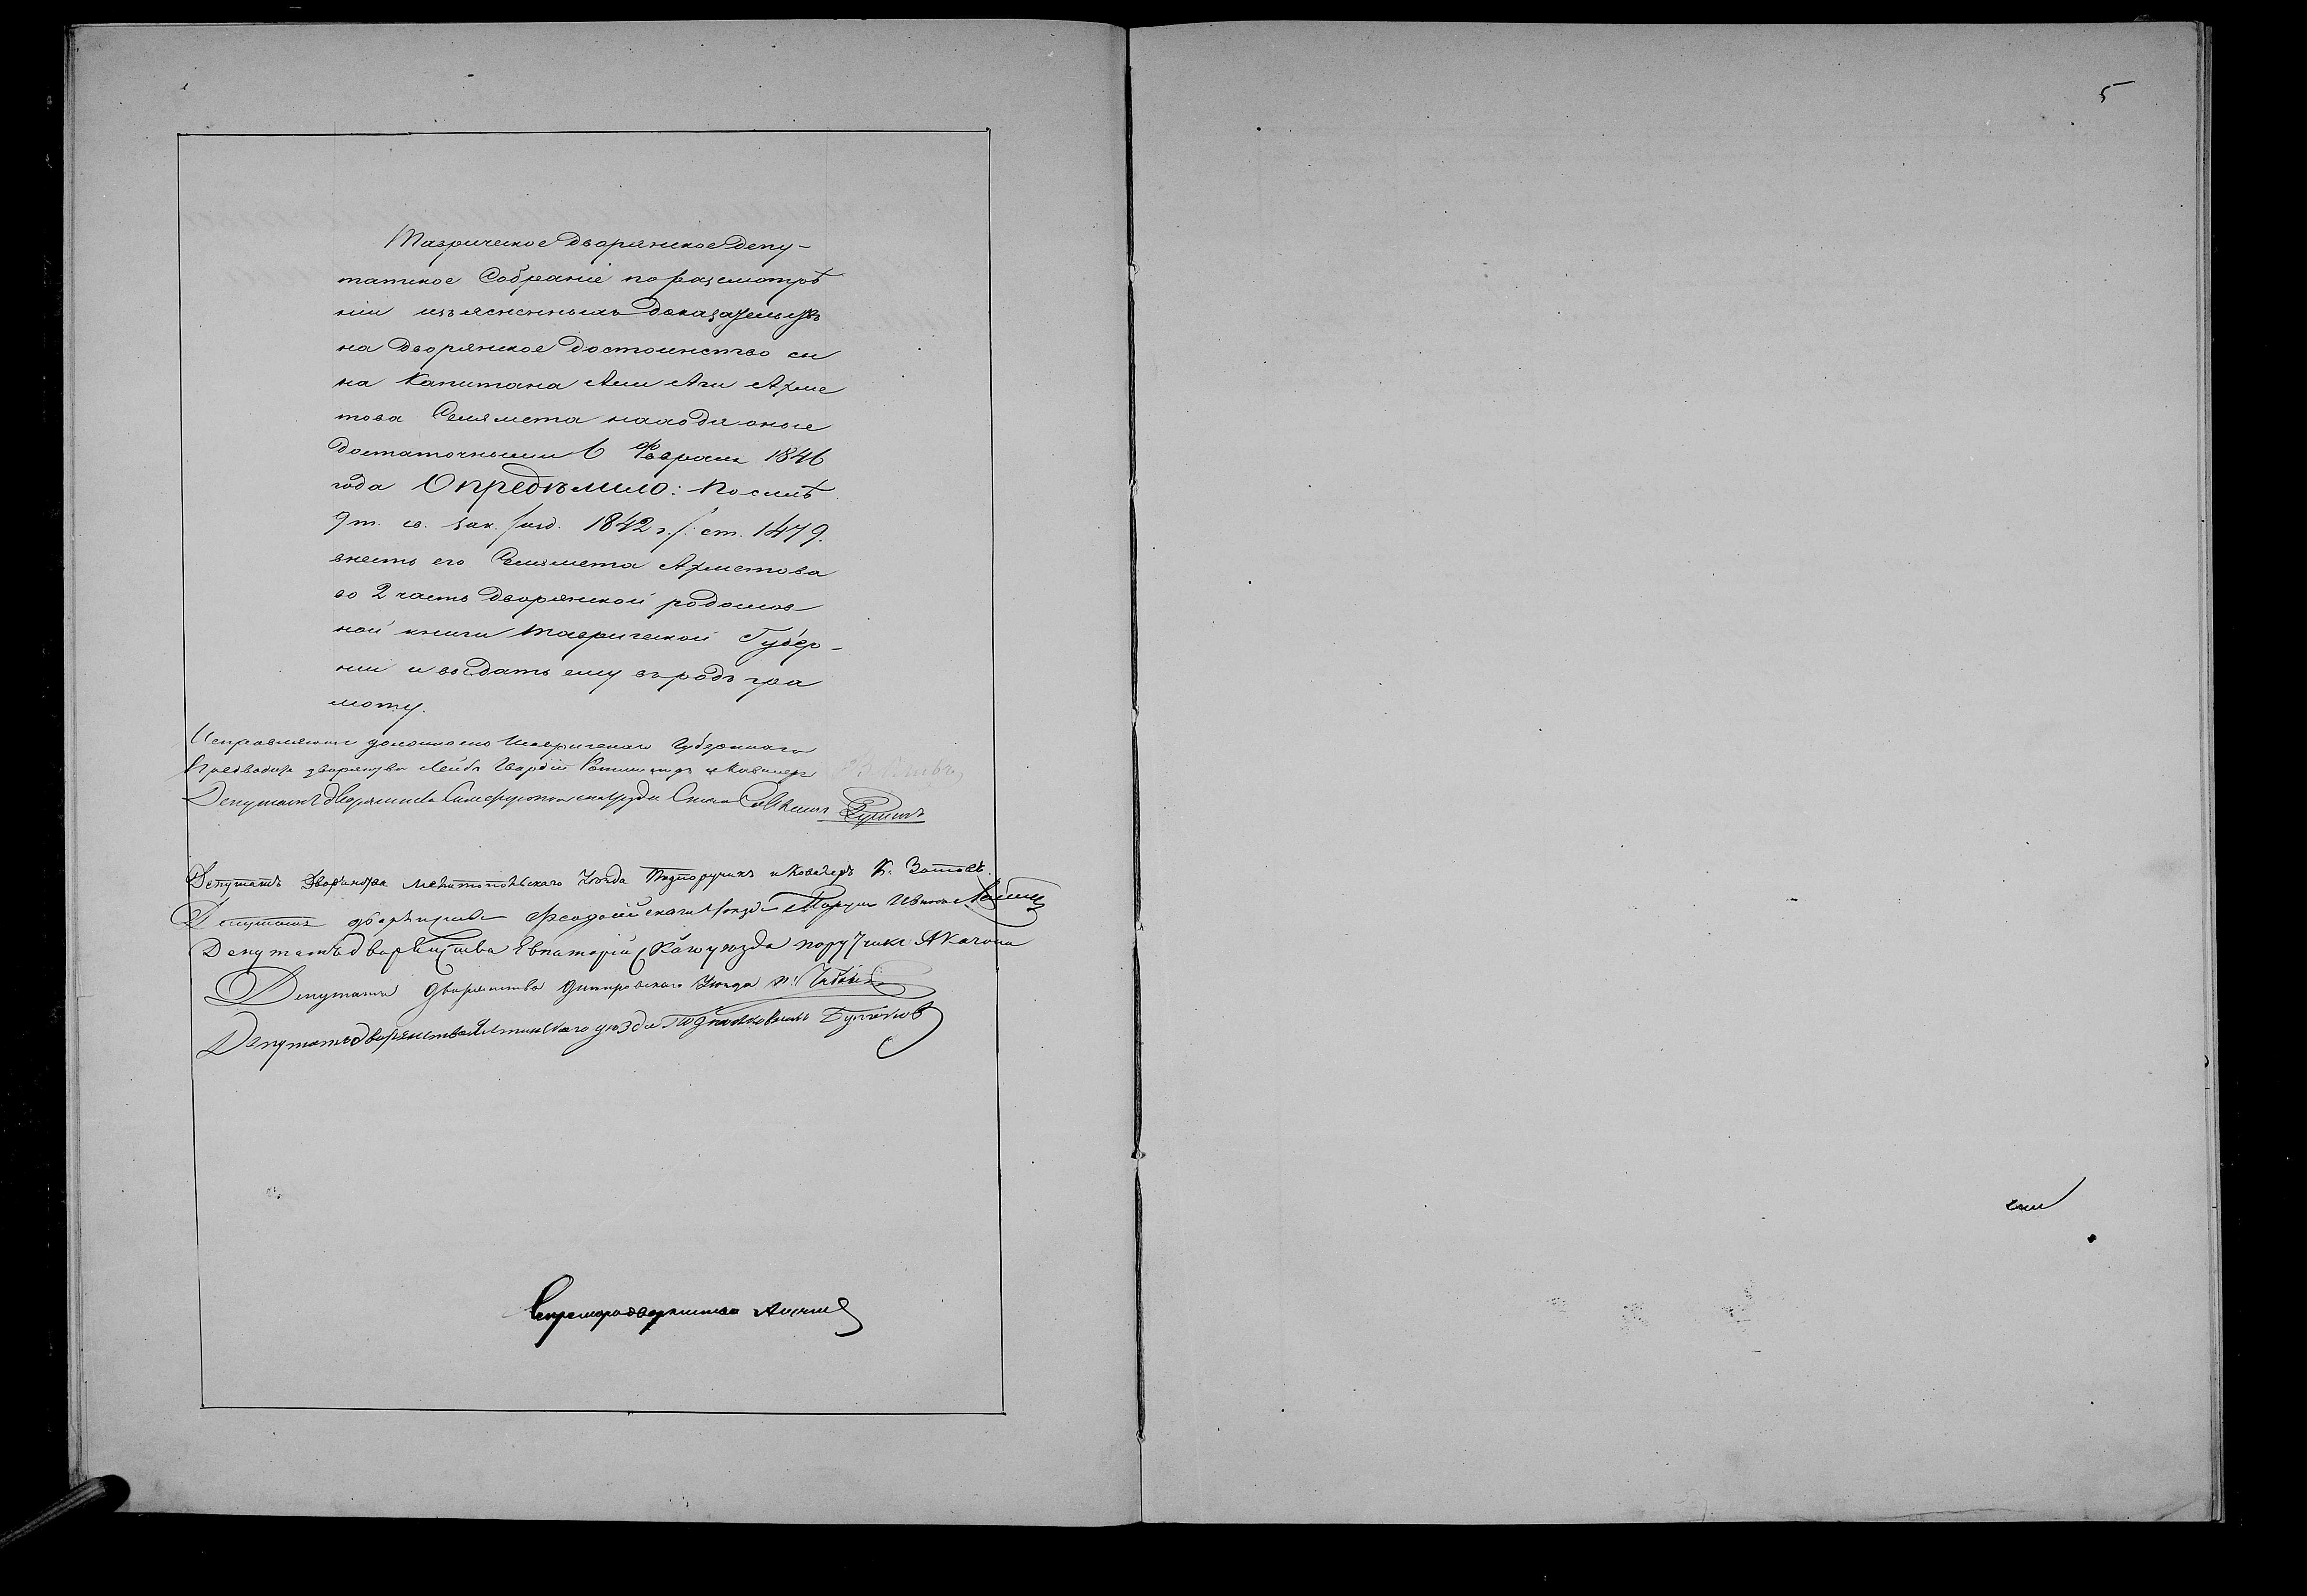 5
Таврическое дворянское депу-
татское Собраніе по разсмотрѣ
ніи изъясненныхъ доказательствъ
на дворянское достоинство сы
на Капитана Али Аги Ахме
това Сеиямета находя оные
достаточными 6 Февраля 1846
года Опредѣлило: по силѣ
9 т. св. зак. /изд. 1842 г./ ст. 1479.
внесть его Сеиямета Ахметова
во 2 часть дворянской родослов
ной книги Таврической Губер-
ніи и выдать ему въ родъ гра
моту.
Исправляющій должность Таврическаго Губернскаго
Предводителя дворянства Лейбъ Гвардіи Ротмистръ и Кавалеръ
Депутатъ дворянства Симферопольскаго уѣзда
Депутатъ Дворянства Мелитопольскаго Уѣзда Подпоручикъ и Кавалеръ К. Зотовъ
Депутатъ дворянства Феодосійскаго Уѣзда
Депутатъ дворянства Евпаторійскаго уѣзда поручикъ
Депутатъ дворянства Днѣпровскаго Уѣзда
Депутатъ дворянства Ялтинскаго уѣзда Подполковникъ
Секретарь дворянства